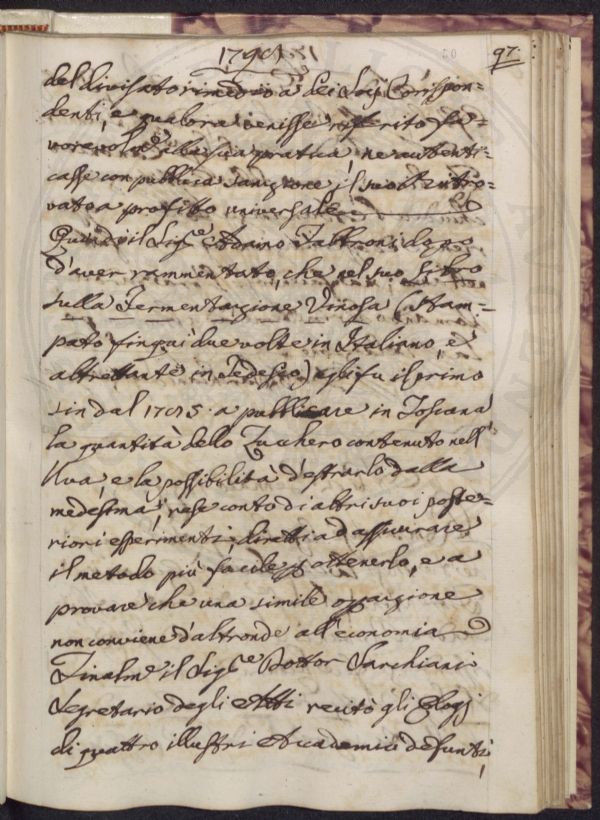 1791
97.
del divisato rimedio a dei Loro Corrispon=
denti, e qualora venisse riferito fa=
vorevolm.e alla sua pratica, ne autenti=
casse con pubblica sanzione il suo ritro=
vato a profitto universale
Quindi il Sig.e Adamo Fabbroni dopo
d'aver rammentato, che nel suo Libro
sulla Fermentazione Vinosa (Stam=
pato fin quì due volte in Italiano, e
altrettante in Tedesco) egli fu il primo
sin dal 1785. a pubblicare in Toscana
la quantità dello Zucchero contenuto nell'
Uva, e la possibilità d'estrarlo dalla
medesima; rese conto di altri suoi poste=
riori esperimenti diretti ad assicurare
il metodo più facile p ottenerlo, e a
provare che una simile operazione
non conviene d'altronde all'economia
Finalm.e il Sig.e Dottor Sarchiani
Segretario degli Atti recitò gli Elogj
di quattro illustri Accademici defunti,